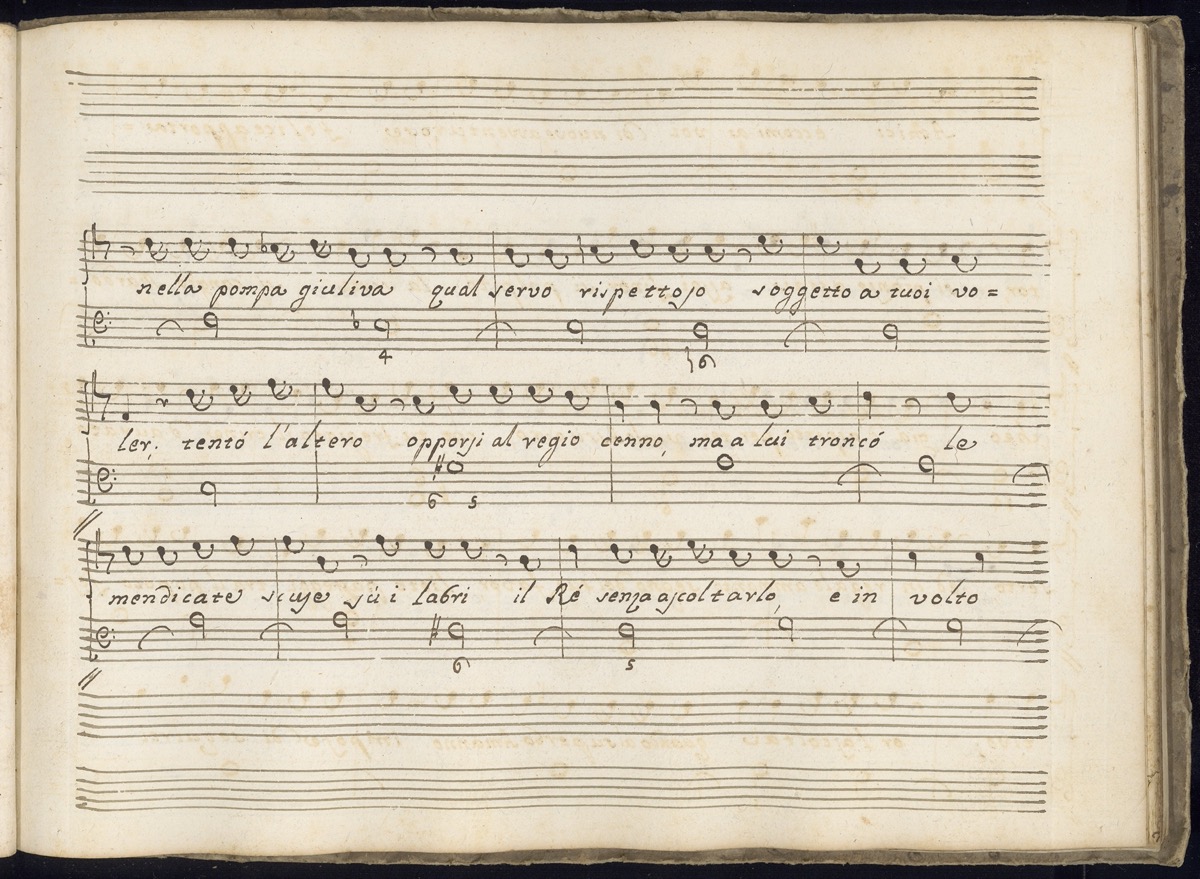 nella pompa giuliva qual servo rispettoso soggetto a tuoi vo=
4 6
ler. tentó l'altero opporsi al regio cenno, ma a lui troncó le
6 5
mendicate scuse sú i labri il Ré senza ascoltarlo, e in volto
6 5